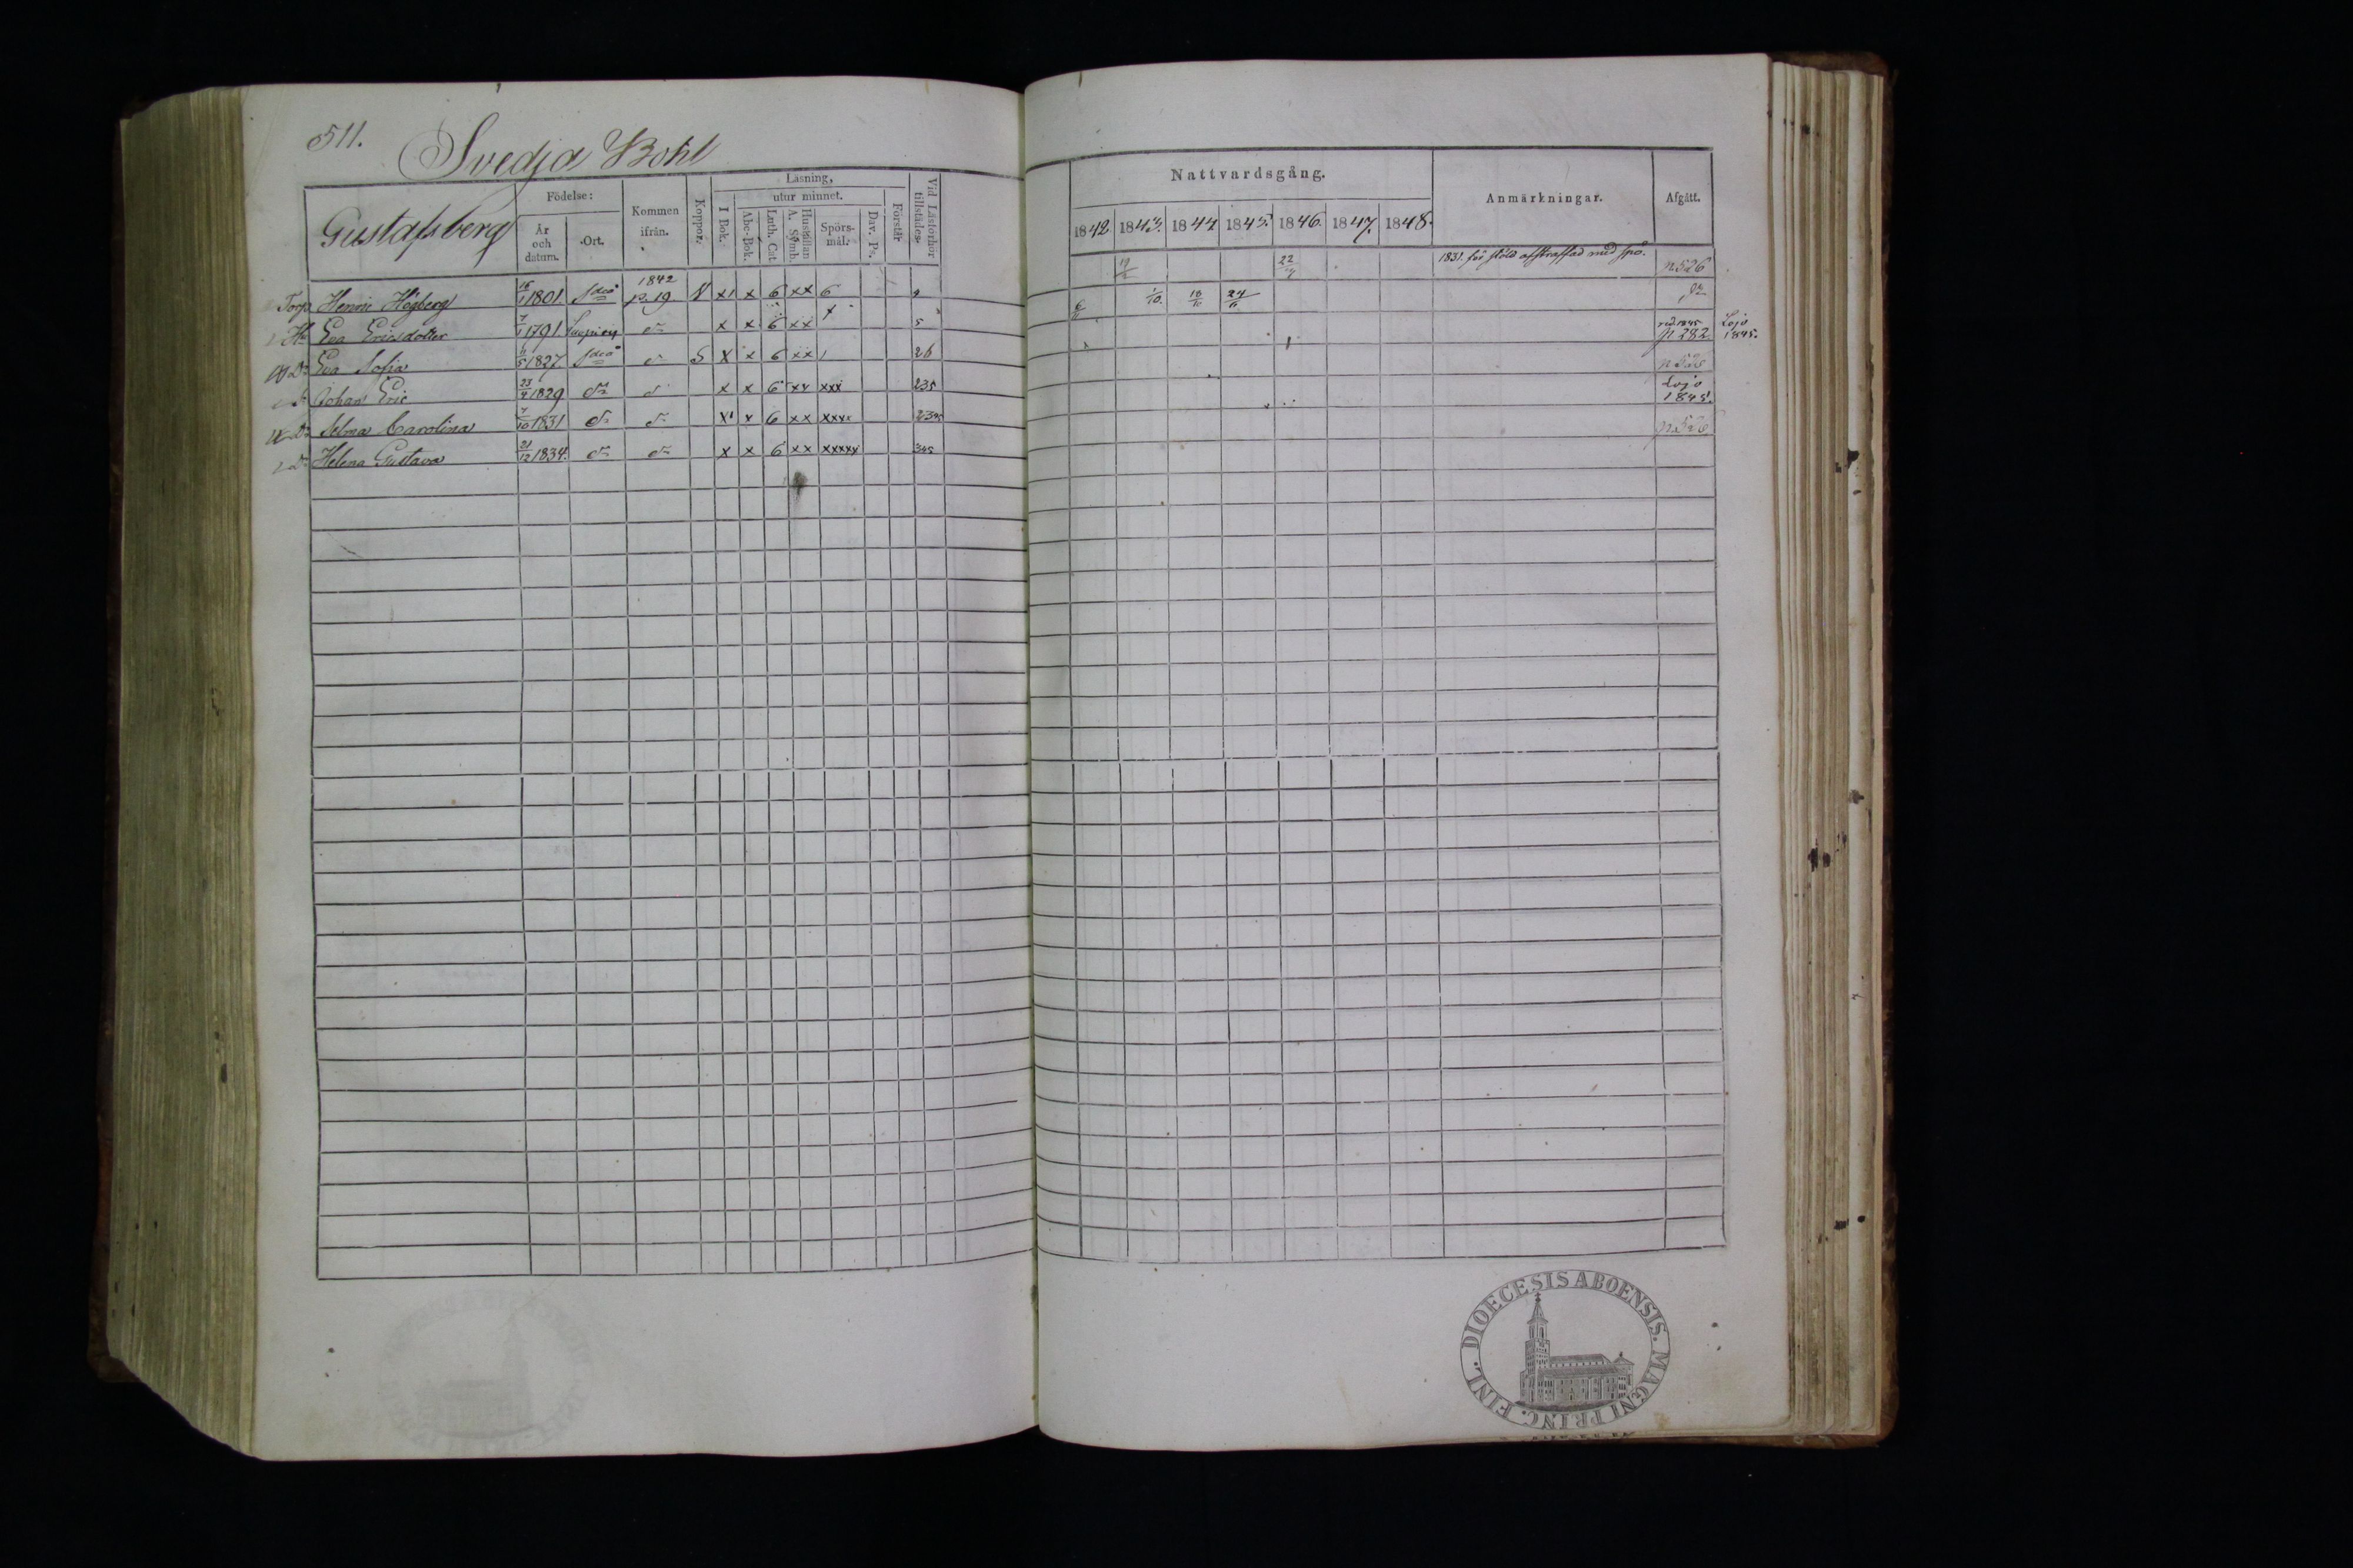 511.
Svedja Bohl
Gustafsberg
Födelse:
År och datum.
Ort.
Kommen ifrån.
Koppor.
Läsning,
I Bok.
utur minnet.
Abc-Bok.
Luth. Cat.
A. Symb.
Hustaflan
Spörsmål.
Dav. Ps.
Förstår
Vid Läsförhör tillstädes.
Torp Henric Högberg 16/1 1801 1842 p. 19 x x 6 xx 6
Hu Eva Ericsdotter 7/1 1791 x x 6 xx x 5
Dr Eva Sofia 1827 S x x 6 xx 26
Johan Eric 23/4 1829 do x x 6 xx xxx 235
Dr Selma Carolina 7/10 1831 do do x x 6 xx xxxx 2345
Dr Helena Gustava 21/12 1834. do do x x 6 xx xxxxx 345
Nattvardsgång.
1842 1843. 1844 1845. 1846. 1847. 1848.
Anmärkningar.
Afgått.
22
1831. för stöld afstraffad med spö.
p 526
24
p 282
Lojo 1845.
Lojo 1845.
DIOECESIS ABOENSIS. MAGNI PRINC. FINL.